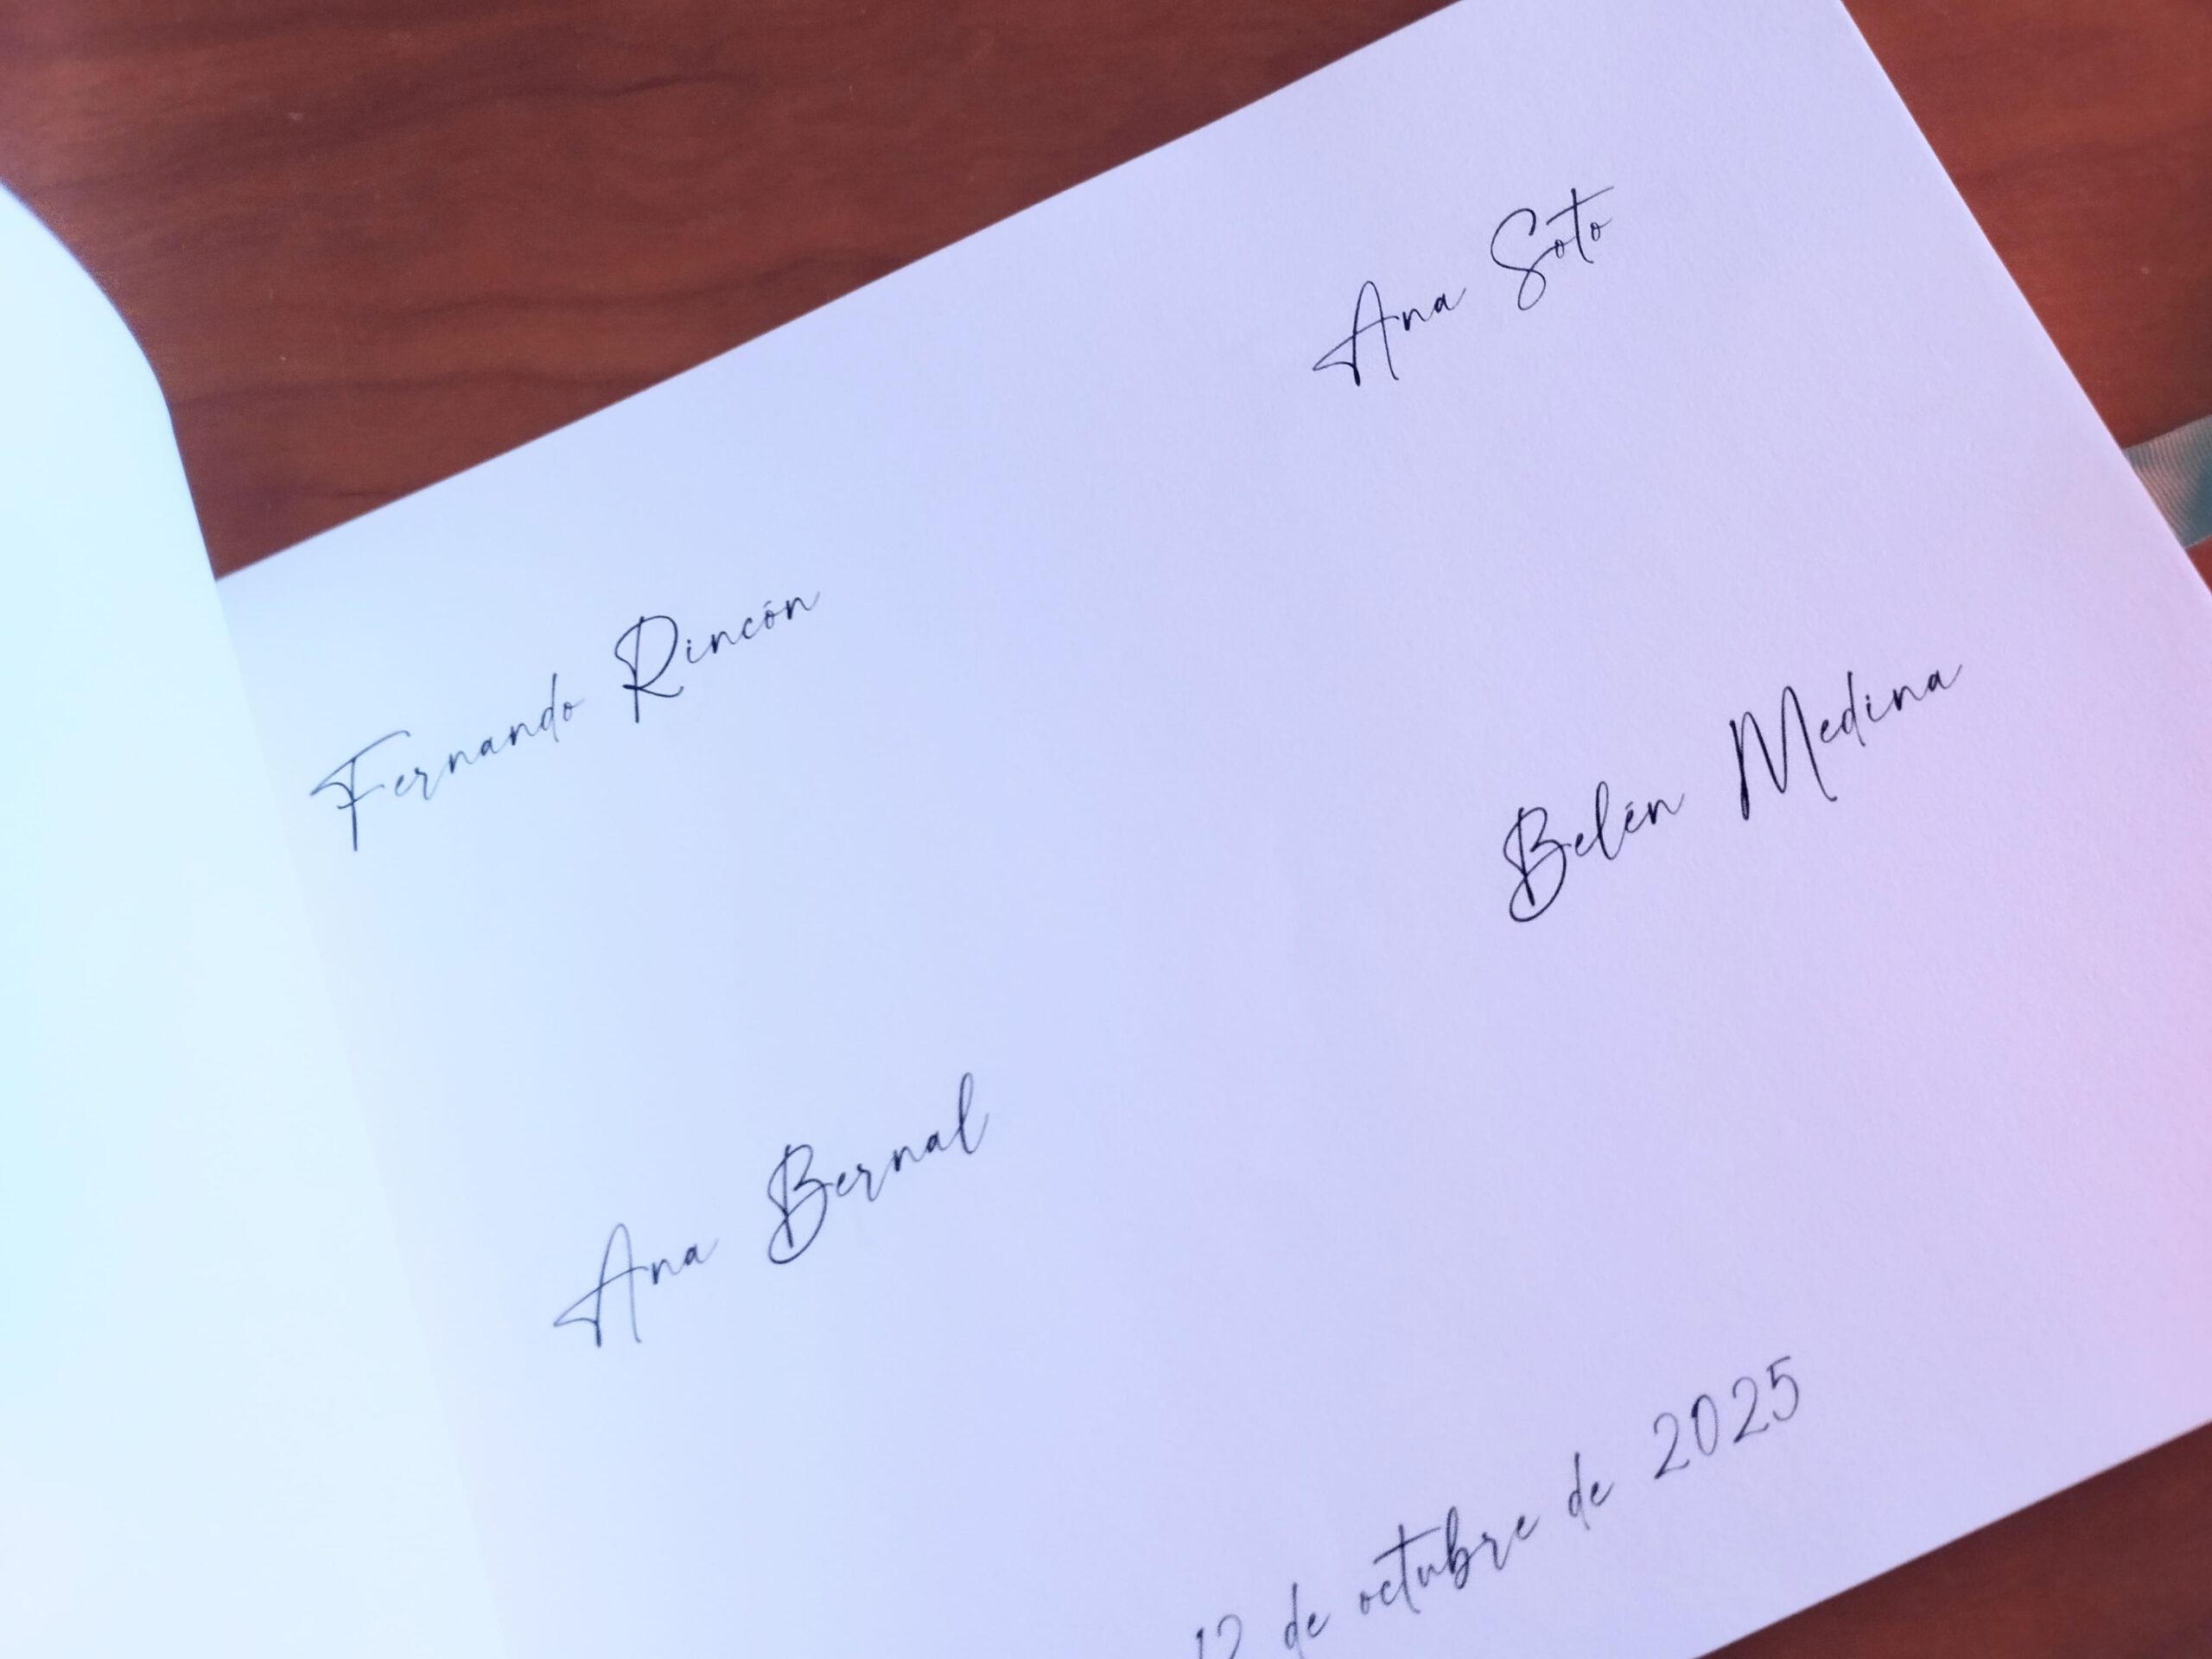 Ana Soto
Fernando Rincón
Belén Medina
Ana Bernal
12 de octubre de 2025